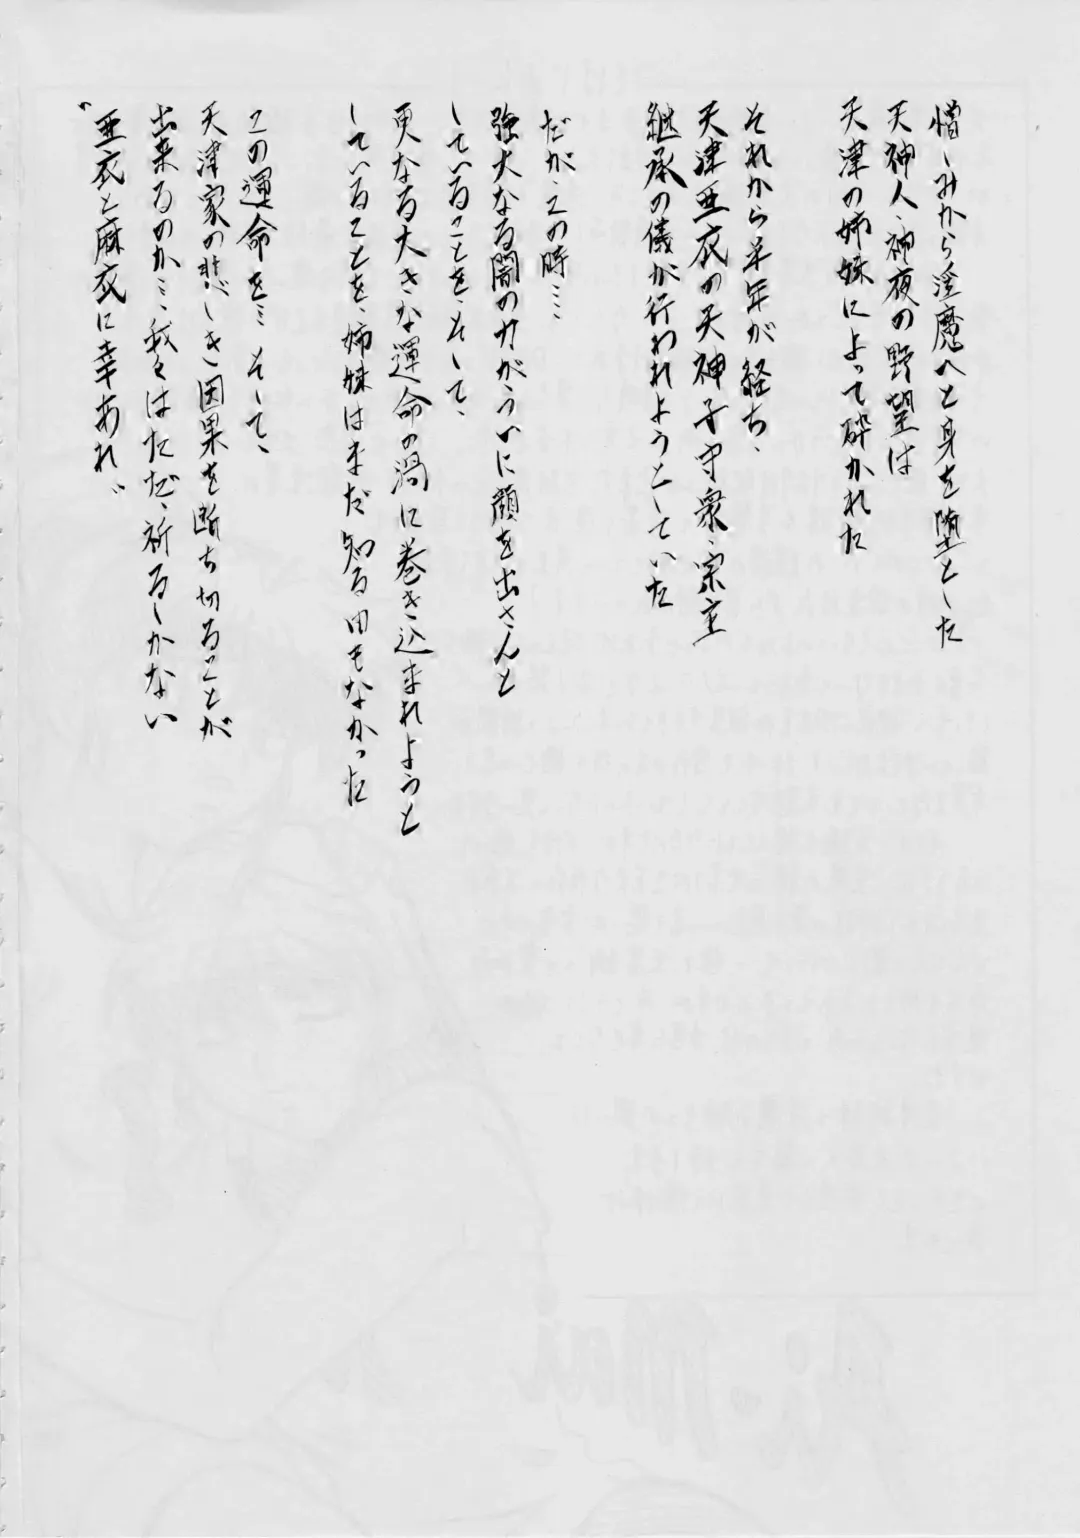 憎しみから淫魔へと身を堕とした
天神人・神夜の野望は
天津の姉妹によって砕かれた
それから半年が経ち、
天津亜衣の天神子守衆・宗主
継承の儀が行われようとしていた
だが、この時…
強大なる闇の力がういに顔を出さんと
していることを、そして、
更なる大きな運命の渦に巻き込まれようと
していることを、姉妹はまだ知る由もなかった
この運命を… そして、
天津家の悲しき因果を断ち切ることが
出来るのか… 我々はただ、祈るしかない
“亜衣と麻衣に幸あれ”